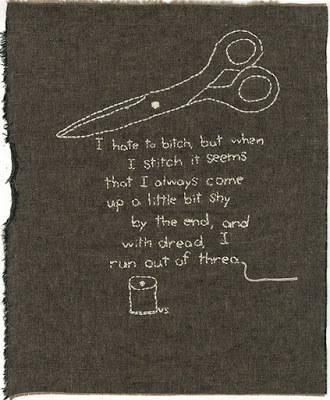 I hate to bitch, but when
I stitch it seems
that I always come
up a little bit shy
by the end, and
with dread, I
run out of threa
vs